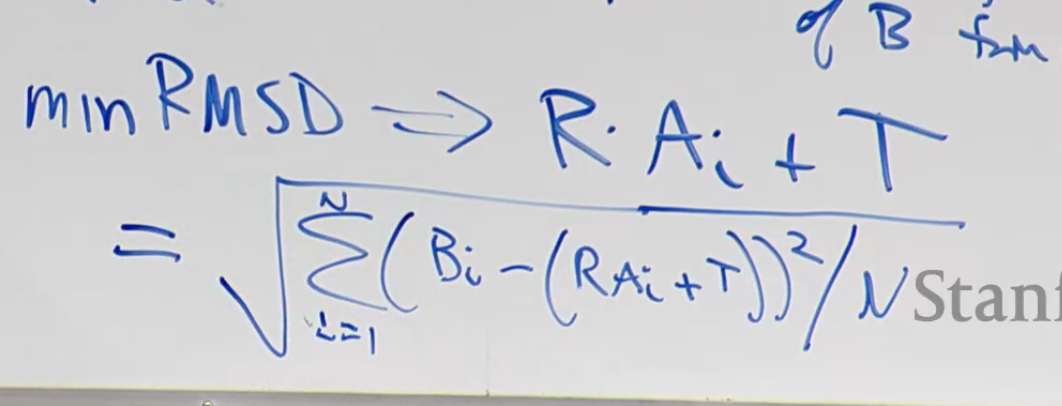 of B from
min RMSD ⇒ R · Ai + T
= √ N Σ i=1 (Bi - (RAi + T))² / N
Stanf